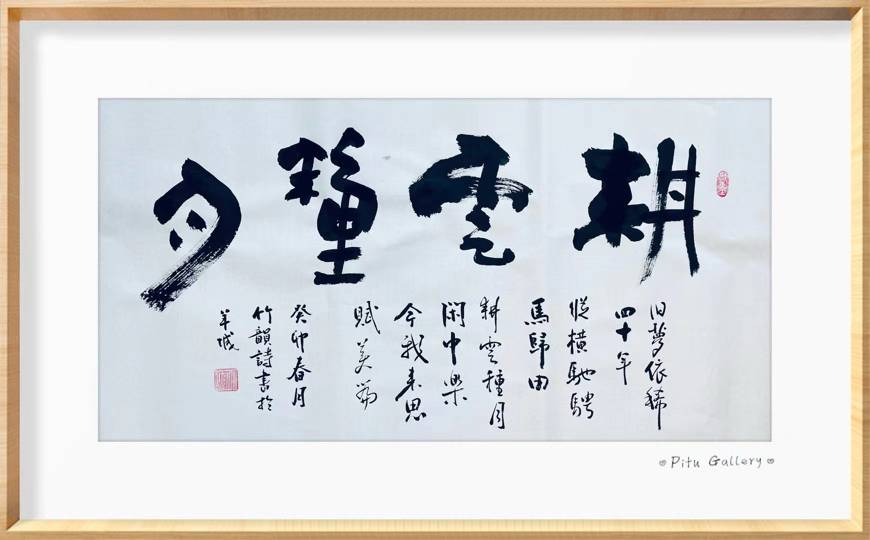 耕雲種月
旧夢依稀
四十年
縱橫馳騁
馬歸田
耕雲種月
閑中樂
今我来思
賦美篇
癸卯春月
竹韻詩書於
羊城
Pitu Gallery